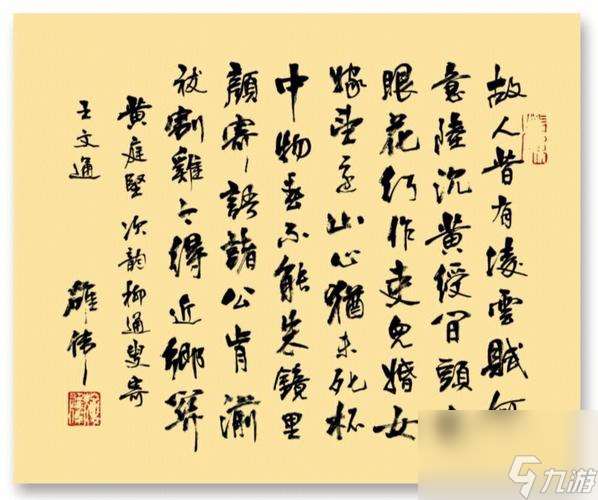 故人昔有凌雲賦何
意陸沉黄綬间頭
眼花行作吏兒婚女
嫁望還山心猶未死杯
中物春不能朱鏡里
顔寄語諸公肯湔
祓割雞今得近鄉関
黄庭堅次韵柳通叟寄
王文通
九游